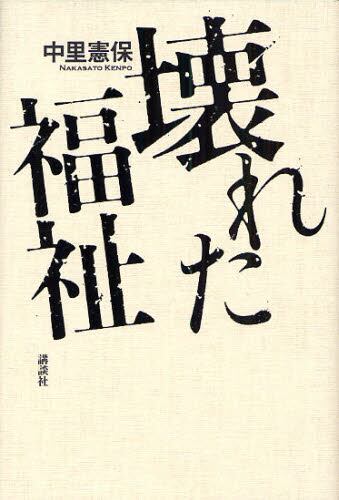 中里憲保
NAKASATO KENPO
壊れた
福祉
講談社